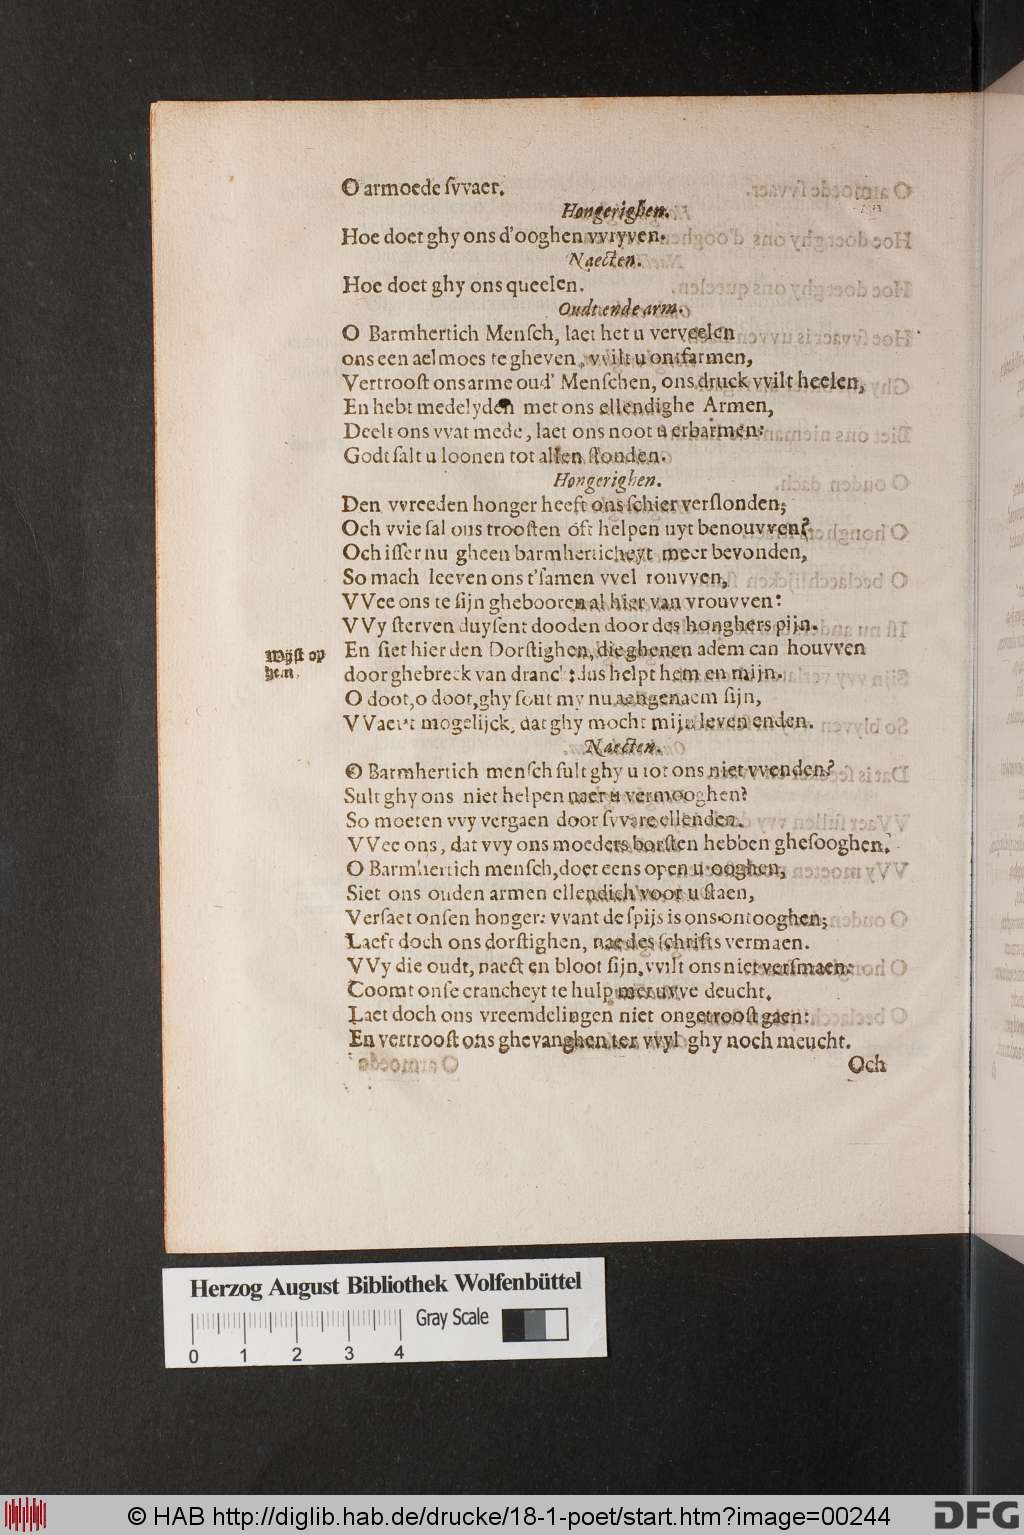 O armoede ſvvaer.
Hongerighen.
Hoe doet ghy ons d'ooghen vvryven.
Naecten.
Hoe doet ghy ons queelen.
Oudt ende arm.
O Barmhertich Menſch, laet het u verveelen
ons een aelmoes te gheven, vvilt u ontfarmen,
Vertrooſt ons arme oud' Menſchen, ons druck vvilt heelen,
En hebt medelyden met ons ellendighe Armen,
Deelt ons vvat mede, laet ons noot u erbarmen:
Godt ſalt u loonen tot allen ſtonden.
Hongerighen.
Den vvreeden honger heeft ons ſchier verſlonden;
Och vvie ſal ons trooſten oft helpen uyt benouvven?
Och iſſer nu gheen barmherticheyt meer bevonden,
So mach leeven ons t'ſamen vvel rouvven,
VVee ons te ſijn ghebooren al hier van vrouvven:
VVy ſterven duyſent dooden door des honghers pijn.
Wijſt op hem.
En ſiet hier den Dorſtighen, die ghenen adem can houvven
door ghebreck van dranck: dus helpt hem en mijn.
O doot, o doot, ghy ſout my nu aengenaem ſijn,
VVaert mogelijck, dat ghy mocht mijn leven enden.
Naecten.
O Barmhertich menſch ſult ghy u tot ons niet vvenden?
Sult ghy ons niet helpen naer u vermooghen?
So moeten vvy vergaen door ſvvare ellenden.
VVee ons, dat vvy ons moeders borſten hebben gheſooghen.
O Barmhertich menſch, doet eens open u ooghen,
Siet ons ouden armen ellendich voor u ſtaen,
Verſaet onſen honger: vvant de ſpijs is ons ontooghen;
Laeft doch ons dorſtighen, nae des ſchrifts vermaen.
VVy die oudt, naect en bloot ſijn, vvilt ons niet verſmaen:
Coomt onſe crancheyt te hulp met uvve deucht.
Laet doch ons vreemdelingen niet ongetrooſt gaen:
En vertrooſt ons ghevanghen ter vvyl ghy noch meucht.
Och
Herzog August Bibliothek Wolfenbüttel
Gray Scale
0 1 2 3 4
© HAB http://diglib.hab.de/drucke/18-1-poet/start.htm?image=00244
DFG